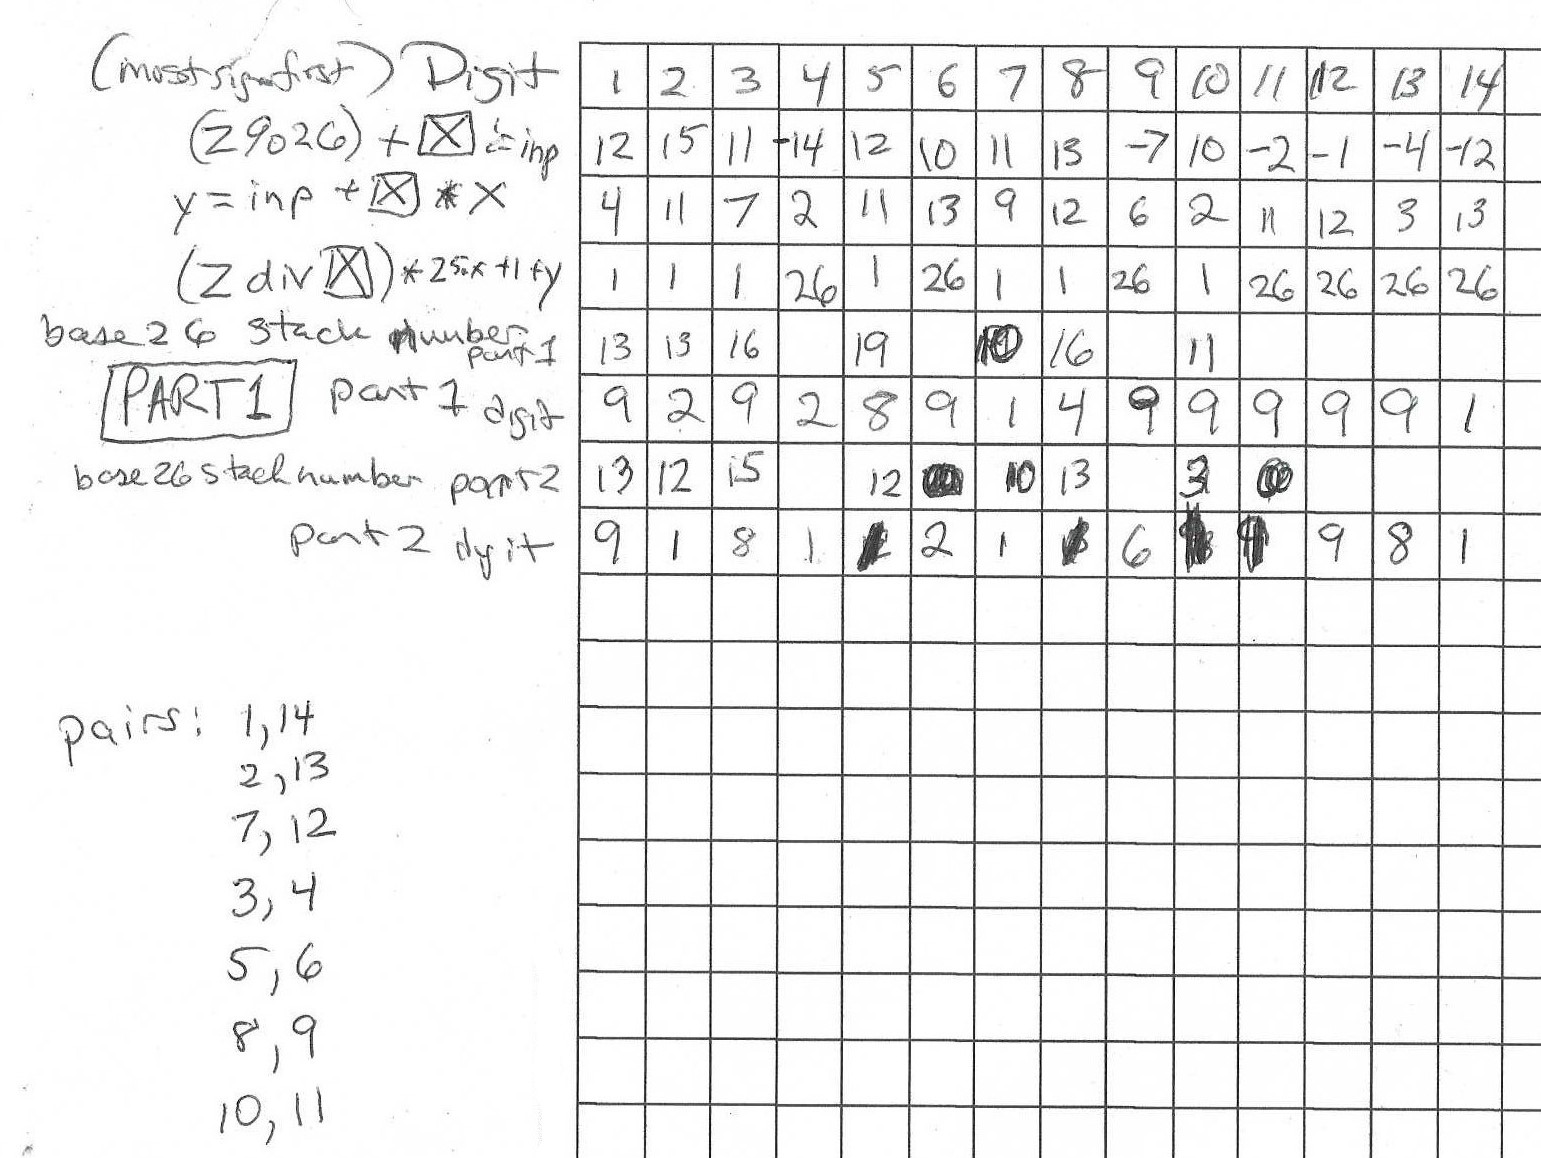 (most sign first) Digit 1 2 3 4 5 6 7 8 9 10 11 12 13 14
(Z % 26) + X = inp 12 15 11 -14 12 10 11 13 -7 10 -2 -1 -4 -12
y = inp + X * X 4 11 7 2 11 13 9 12 6 2 11 12 3 13
(Z div X) * 25·x+1 +y 1 1 1 26 1 26 1 1 26 1 26 26 26 26
base 26 stack number part 1 13 13 16 19 10 16 11
PART 1 part 1 digit 9 2 9 2 8 9 1 4 9 9 9 9 9 1
base 26 stack number part 2 13 12 15 12 10 13 3
part 2 digit 9 1 8 1 2 1 6 9 8 1
pairs: 1, 14
2, 13
7, 12
3, 4
5, 6
8, 9
10, 11